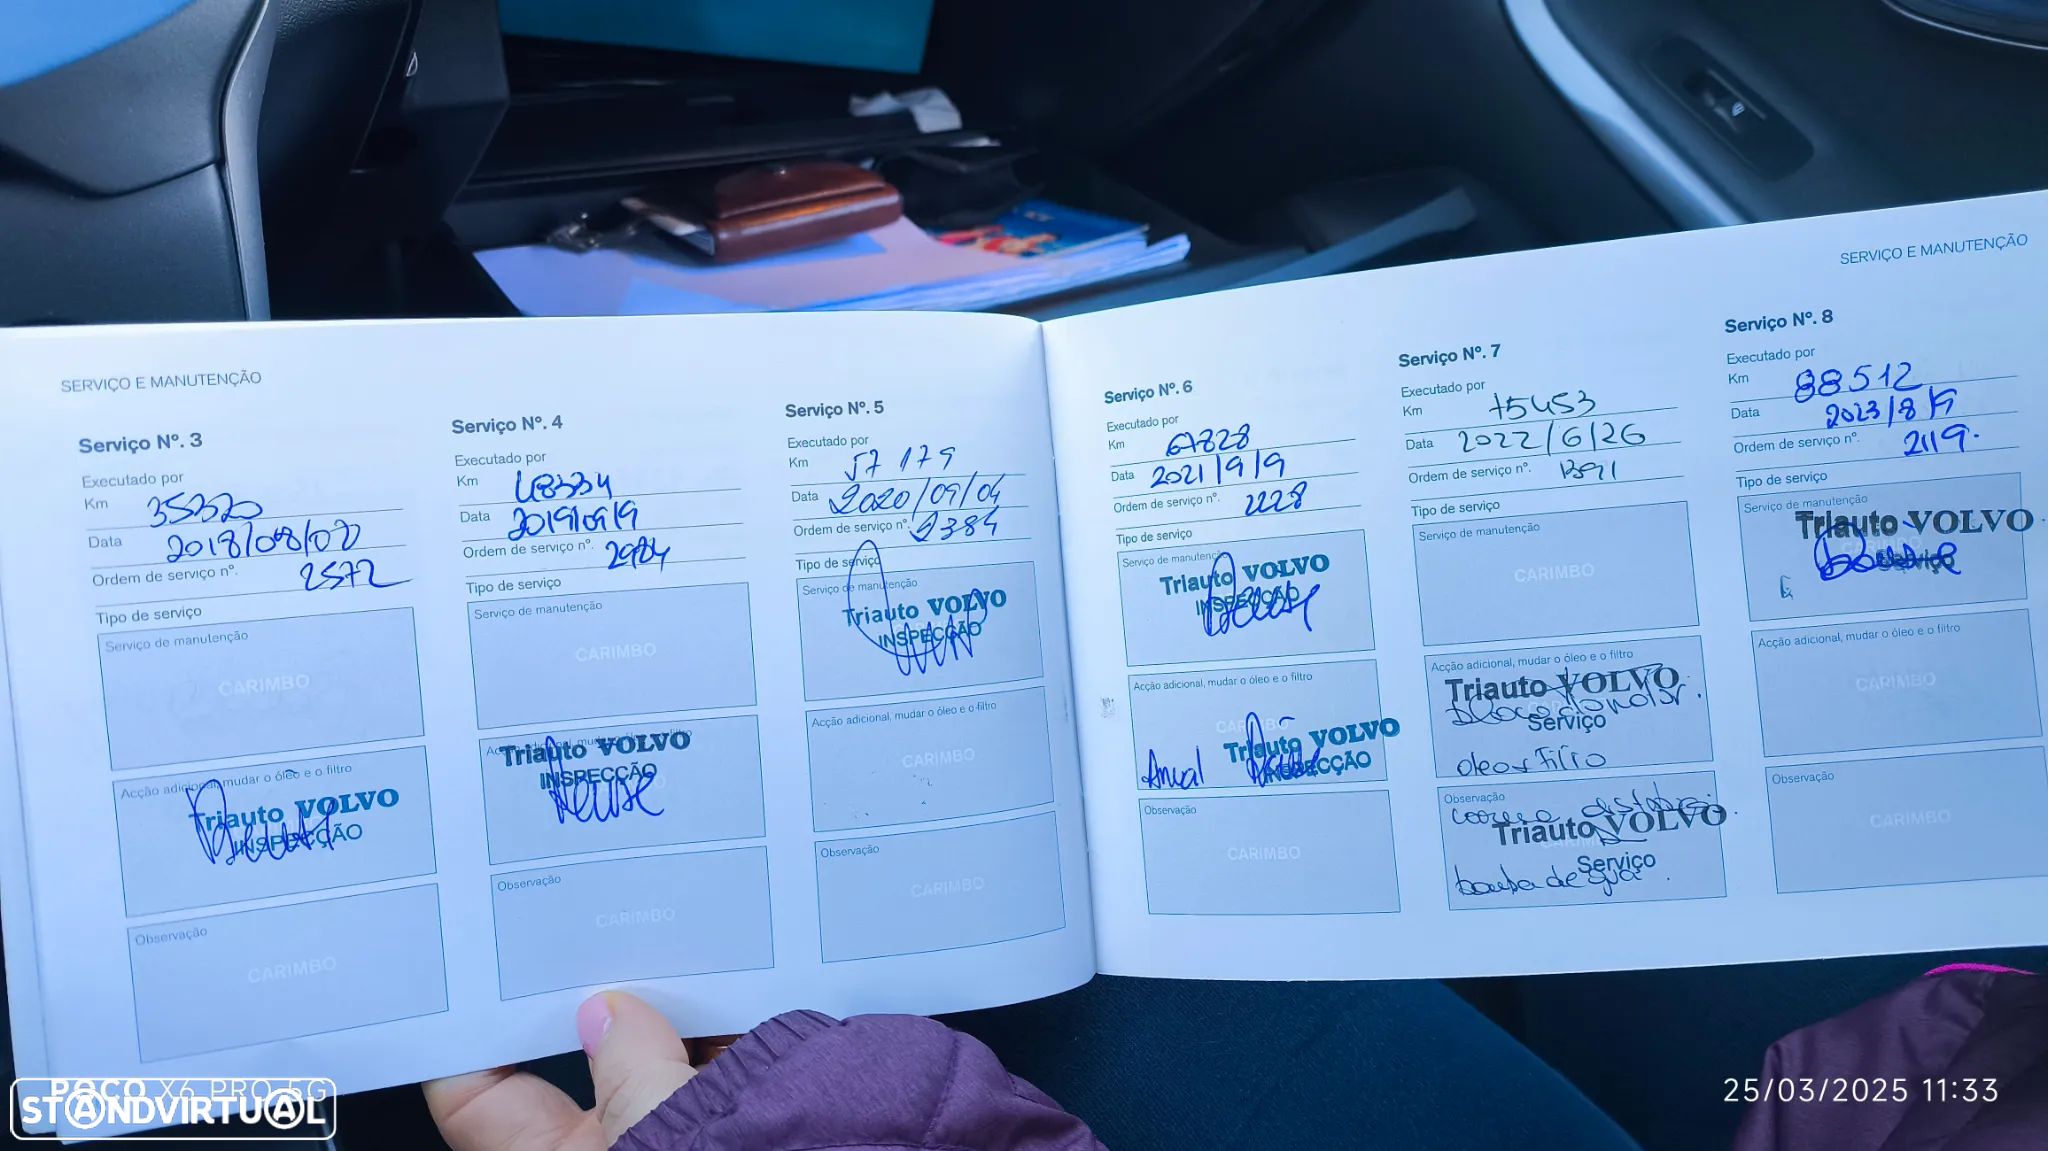 SERVIÇO E MANUTENÇÃO
Serviço Nº. 3
Executado por
Km 35320
Data 2018/08/02
Ordem de serviço nº. 2572
Tipo de serviço
Serviço de manutenção
CARIMBO
Acção adicional, mudar o óleo e o filtro
Triauto VOLVO
INSPECÇÃO
Observação
CARIMBO
Serviço Nº. 4
Executado por
Km 48334
Data 2019/09/9
Ordem de serviço nº. 2984
Tipo de serviço
Serviço de manutenção
CARIMBO
Triauto VOLVO
INSPECÇÃO
Observação
CARIMBO
Serviço Nº. 5
Executado por
Km 57 179
Data 2020/09/04
Ordem de serviço nº. 2384
Tipo de serviço
Serviço de manutenção
Triauto VOLVO
INSPECÇÃO
Acção adicional, mudar o óleo e o filtro
CARIMBO
Observação
CARIMBO
Serviço Nº. 6
Executado por
Km 67828
Data 2021/9/9
Ordem de serviço nº. 2228
Tipo de serviço
Serviço de manutenção
Triauto VOLVO
INSPECÇÃO
Acção adicional, mudar o óleo e o filtro
Anual Triauto VOLVO
INSPECÇÃO
Observação
CARIMBO
Serviço Nº. 7
Executado por
Km 75453
Data 2022/6/26
Ordem de serviço nº. 1391
Tipo de serviço
Serviço de manutenção
CARIMBO
Acção adicional, mudar o óleo e o filtro
Triauto VOLVO
Serviço
oleo+Filtro
Observação
correia distribui.
Triauto VOLVO
Serviço
bomba de agua.
SERVIÇO E MANUTENÇÃO
Serviço Nº. 8
Executado por
Km 88512
Data 2023/8/9
Ordem de serviço nº. 2119.
Tipo de serviço
Serviço de manutenção
Triauto VOLVO
Serviço
Acção adicional, mudar o óleo e o filtro
CARIMBO
Observação
CARIMBO
POCO X6 PRO 5G
STANDVIRTUAL
25/03/2025 11:33